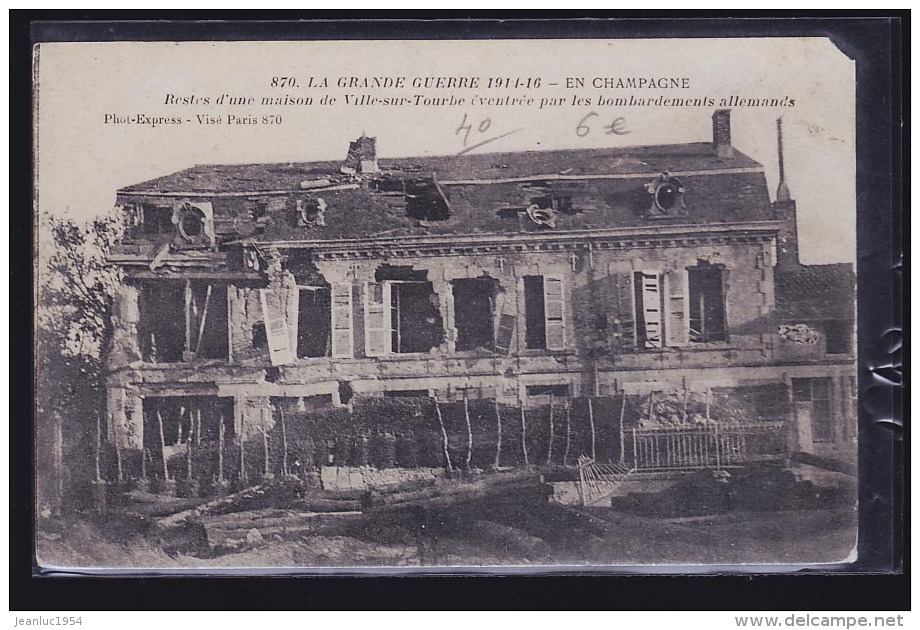 870. LA GRANDE GUERRE 1914-16 — EN CHAMPAGNE
Restes d'une maison de Ville-sur-Tourbe éventrée par les bombardements allemands
Phot-Express - Visé Paris 870
40 6€
jeanluc1954
www.delcampe.net